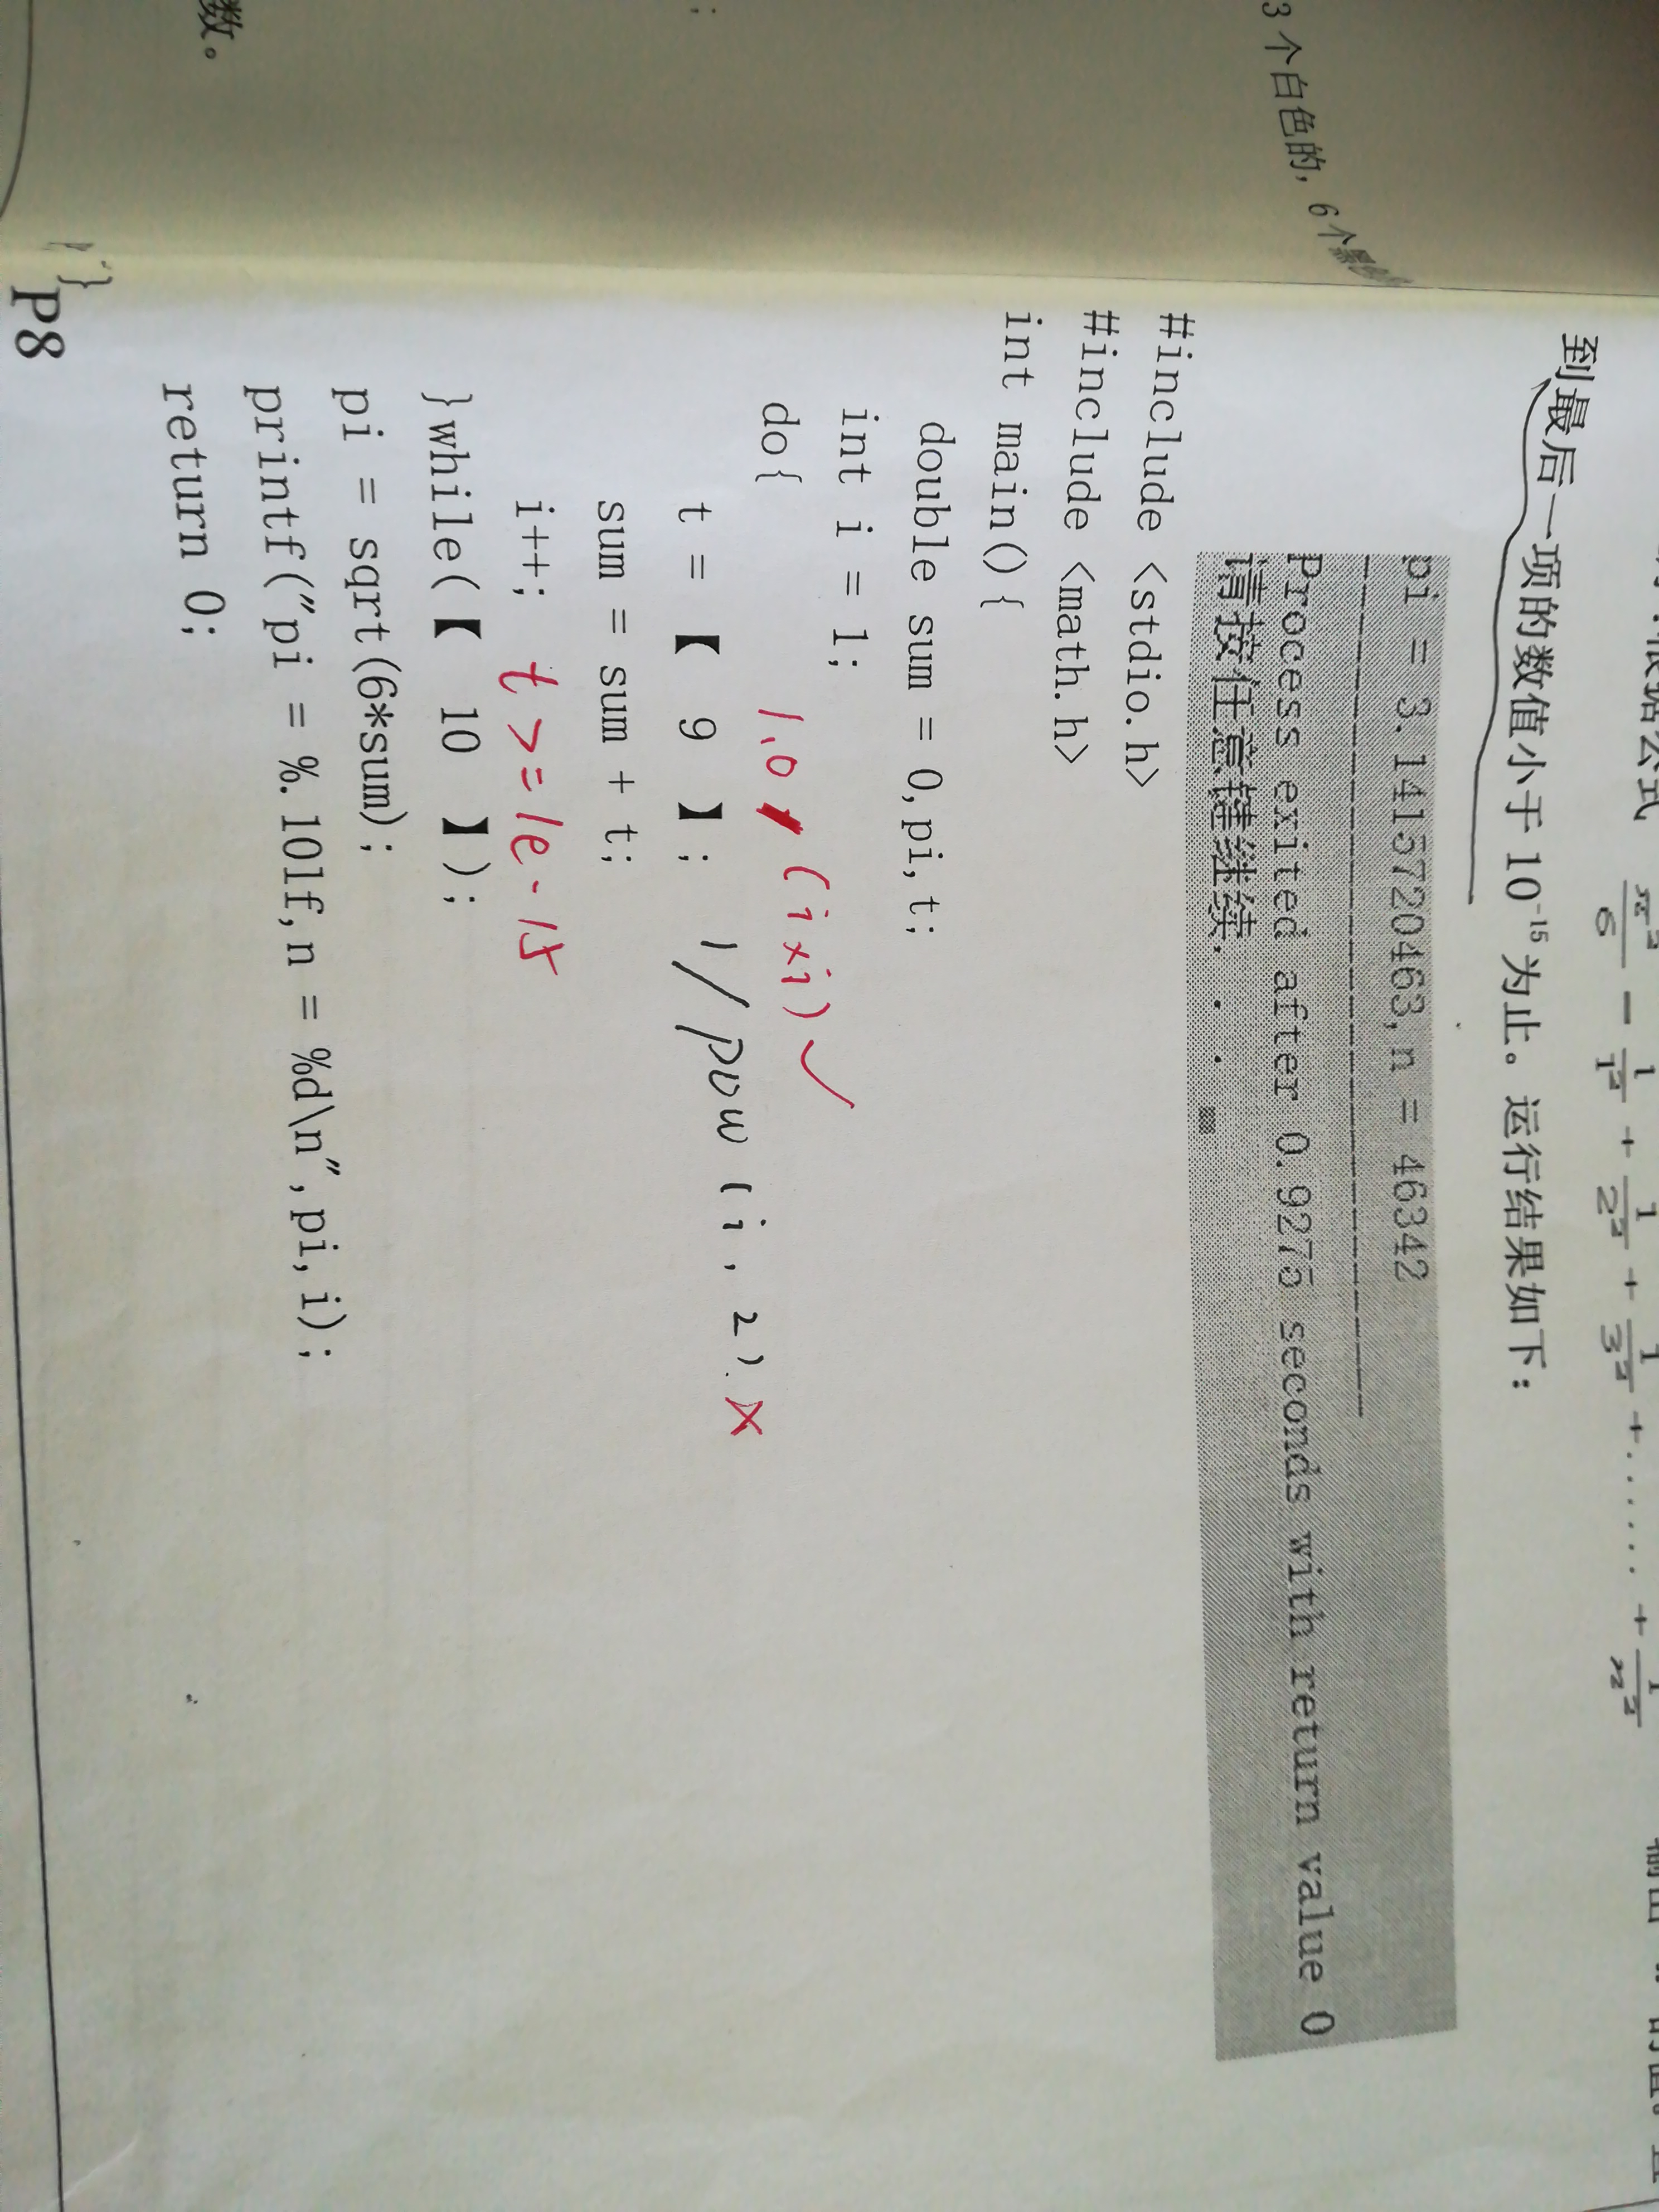 3 个白色的, 6个
数。
根据公式 π²/6 = 1/1² + 1/2² + 1/3² + ...... + 1/n²
到最后一项的数值小于 10⁻¹⁵ 为止。运行结果如下:
pi = 3.1415720463, n = 46342
Process exited after 0.9275 seconds with return value 0
请按任意键继续. . .
#include <stdio.h>
#include <math.h>
int main() {
double sum = 0, pi, t;
int i = 1;
do{
1.0 / (i×i) ✓
t = 【 9 】; 1/pow(i,2). ×
sum = sum + t;
i++;
t >= 1e-15
}while(【 10 】);
pi = sqrt(6*sum);
printf("pi = %.10lf, n = %d\n", pi, i);
return 0;
}
P8